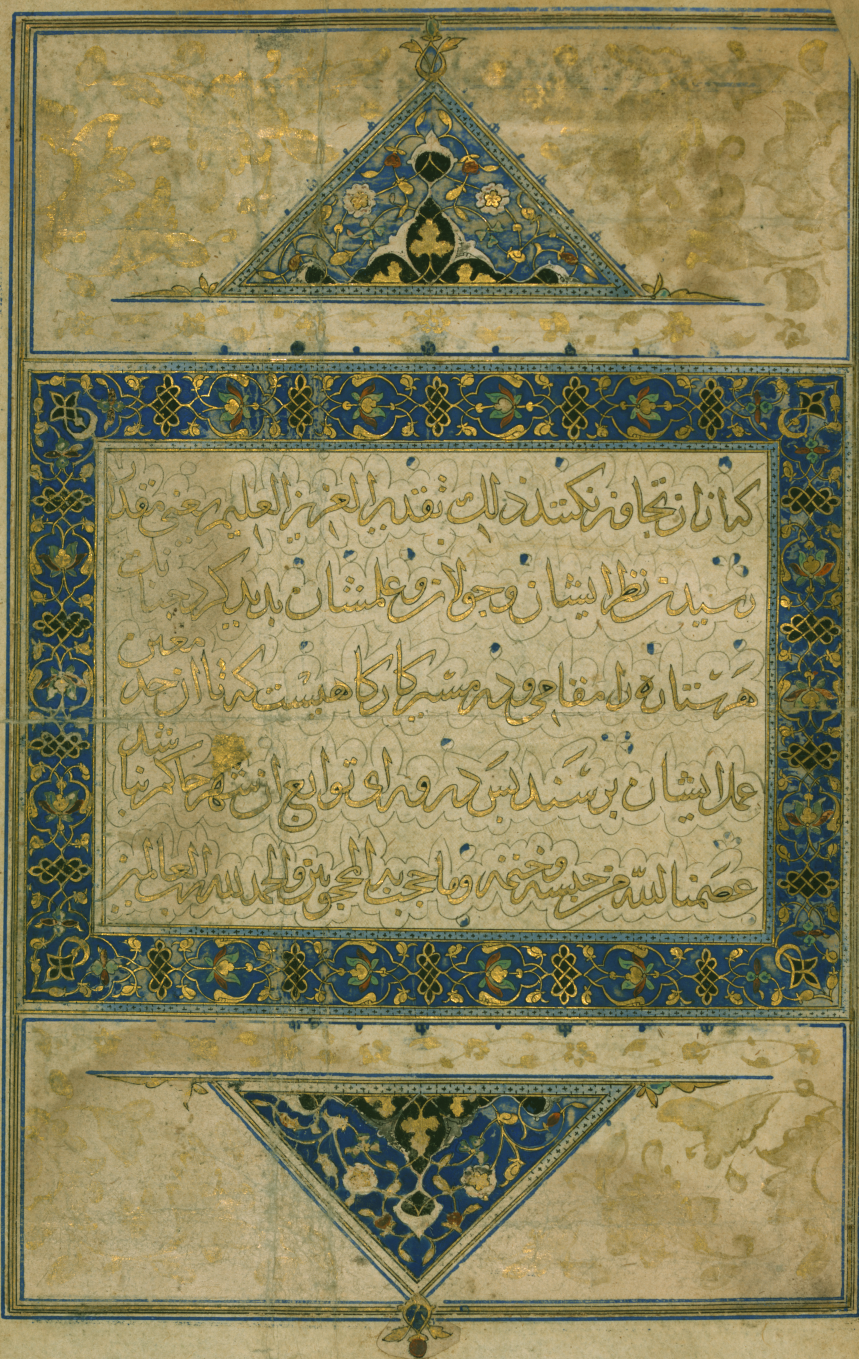 که از ان تجاوز نکنند ذلك تقدیر العزیز العلیم یعنی مقد
رسیدن نظر ایشان و جولان وعلمشان بدید کرد
هر ستاره را مقامی و در مسیر کارکاهیست که تا از حد معین
عمل ایشان برسند بس در ورای توابع ان شهر حاکم نباشد
عصمنا الله من حبسه وختمه وما حجب به المحجوبین والحمد لله رب العالمین